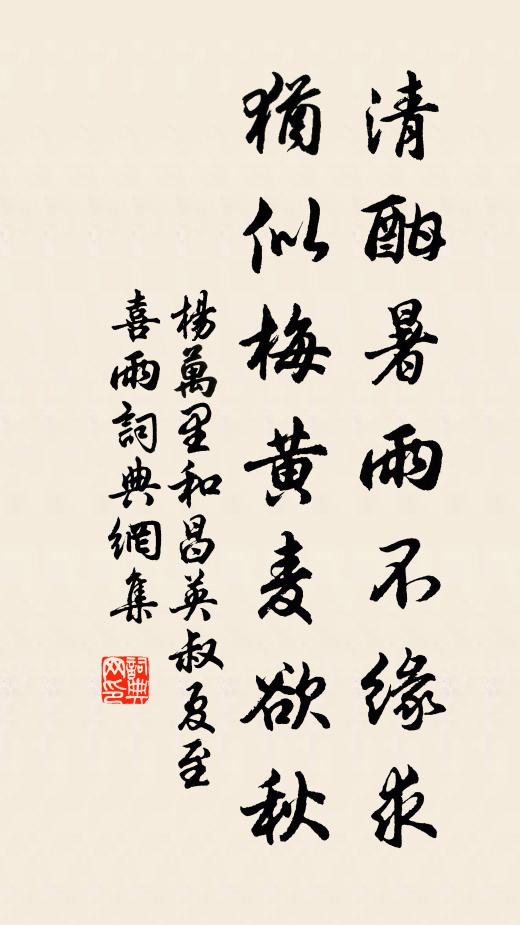 清酣暑雨不缘求
犹似梅黄麦欲秋
楊萬里和昌英叔夏至
喜雨詞典網集
詞典
网印